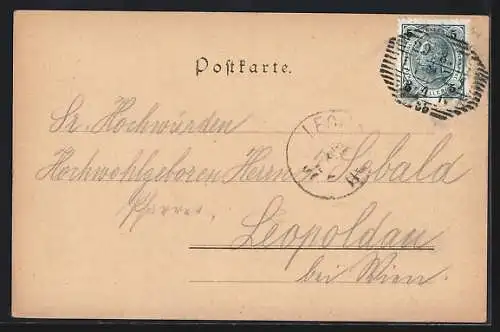 Postkarte.
Sr. Hochwürden
Hochwohlgeboren Herrn Sobald
Pfarrer
Leopoldau
bei Wien.